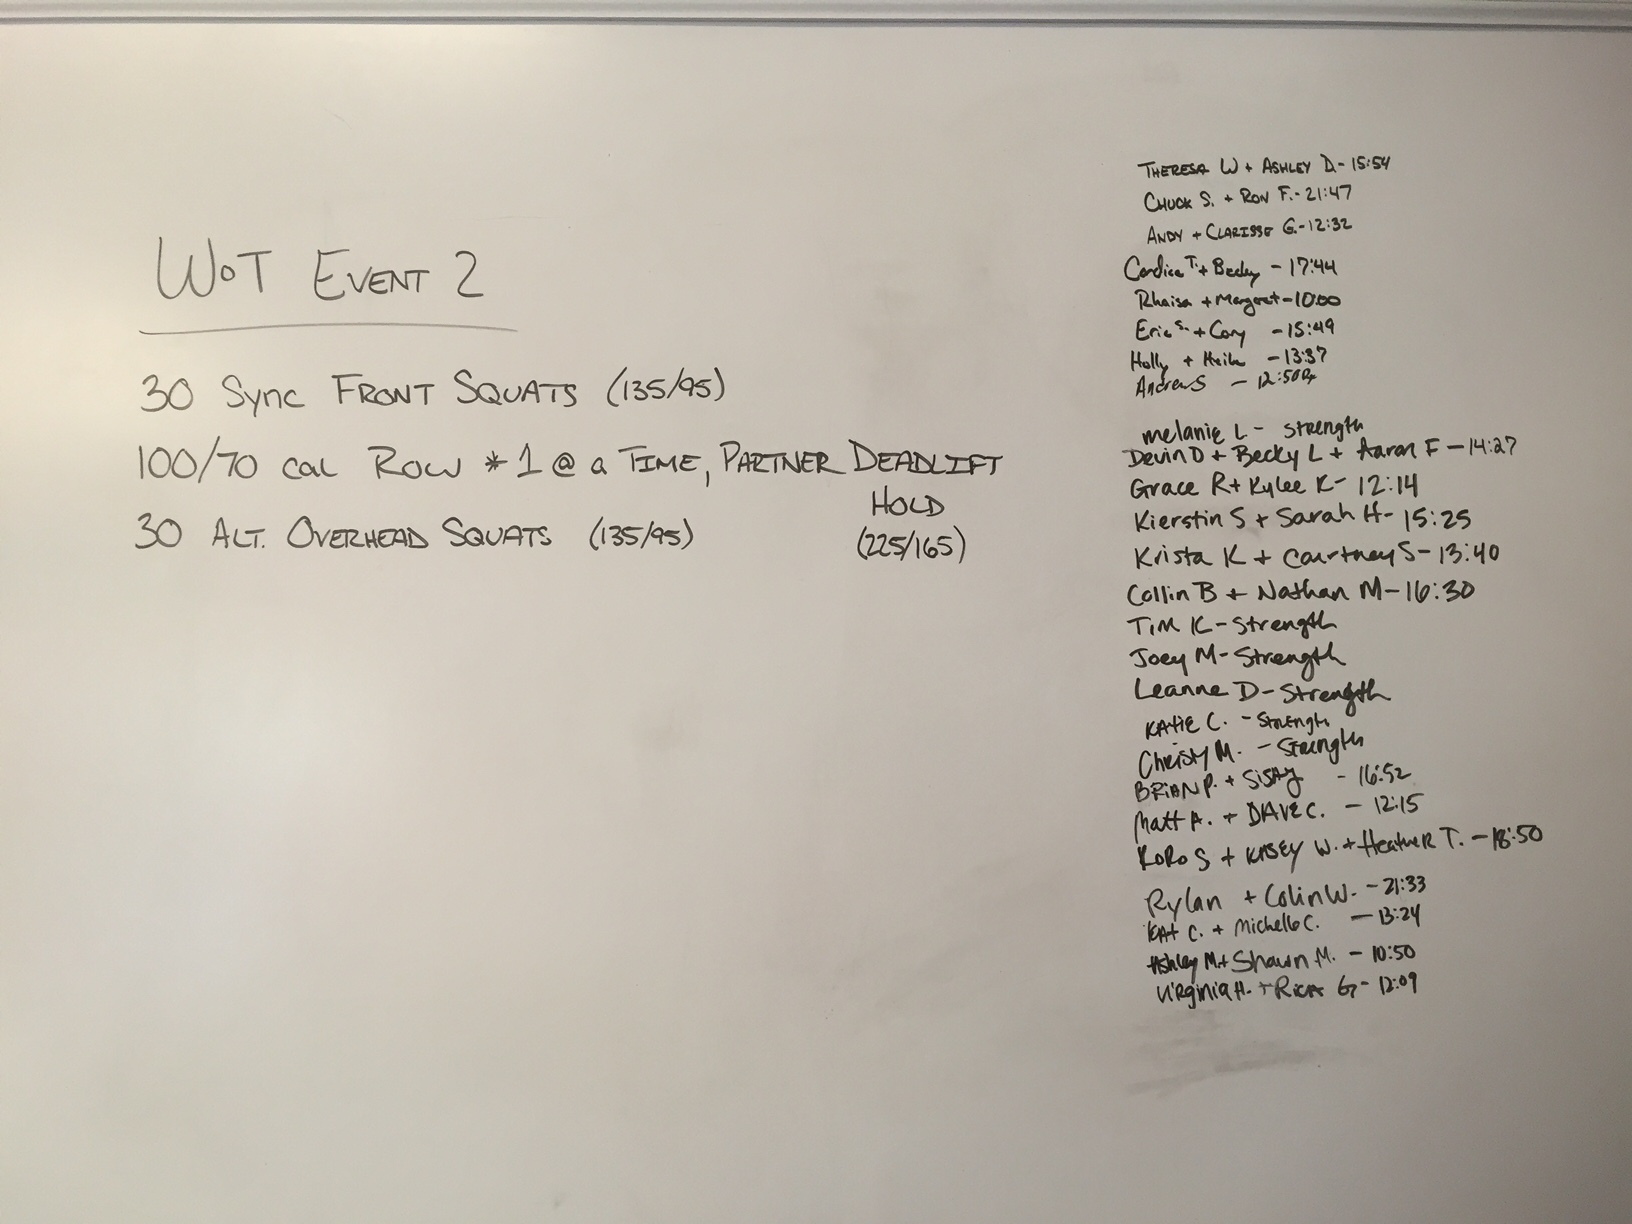 WOT EVENT 2
30 Sync FRONT SQUATS (135/95)
100/70 cal ROW * 1 @ a TIME, PARTNER DEADLIFT
HOLD
(225/165)
30 ALT. OVERHEAD SQUATS (135/95)
THERESA W + ASHLEY D.- 15:54
CHUCK S. + RON F.- 21:47
ANDY + CLARISSE G.- 12:32
Candice T. + Becky - 17:44
Rhaisa + Margaret - 10:00
Eric S. + Cory - 15:49
Holly + - 13:37
Andrew S - 12:50 Rx
melanie L - Strength
Devin D + Becky L + Aaron F - 14:27
Grace R + Kylee K - 12:14
Kierstin S + Sarah H - 15:25
Krista K + Courtney S - 13:40
Collin B + Nathan M - 16:30
Tim K - Strength
Joey M - Strength
Leanne D - Strength
KATIE C. - Strength
Christy M. - Strength
BRIAN P. + SISAY - 16:52
Matt A. + DAVE C. - 12:15
KORO S + KASEY W. + Heather T. - 18:50
Rylan + Colin W. - 21:33
KAt C. + Michelle C. - 13:24
Ashley M. + Shawn M. - 10:50
Virginia H. + RICK G - 12:09